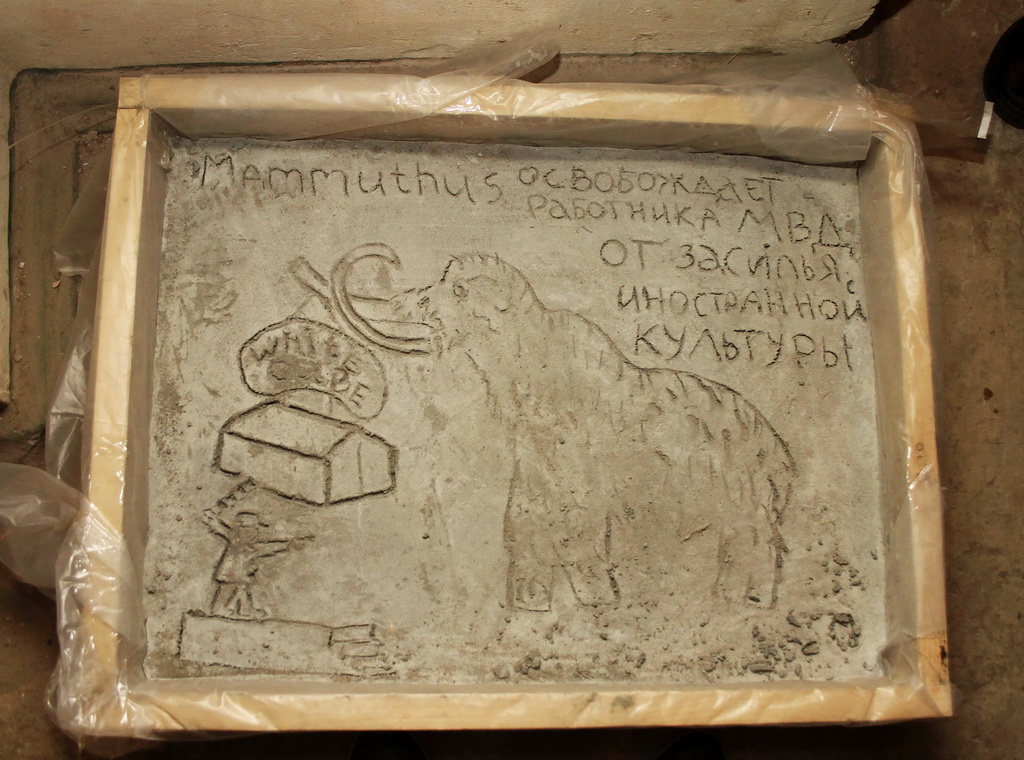 Mammuthus ОСВОБОЖДАЕТ
РАБОТНИКА МВД
ОТ ЗАСИЛЬЯ
ИНОСТРАННОЙ
КУЛЬТУРЫ
WHITE